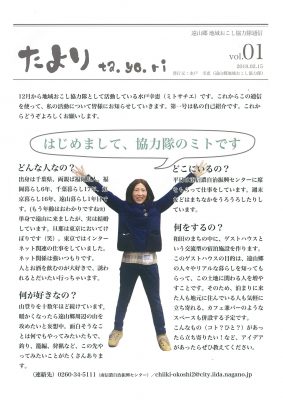 遠山郷 地域おこし協力隊通信
たより
ta.yo.ri
vol.01
2018.02.15
発行元：水戸 幸恵（遠山郷地域おこし協力隊）
12月から地域おこし協力隊として活動している水戸幸恵（ミトサチエ）です。これからこの通信
を使って、私の活動について皆様にお知らせしていきます。第一号は私の自己紹介です。これか
らどうぞよろしくお願いします。
はじめまして、協力隊のミトです
どんな人なの？
出身は千葉県、両親は福岡県
岡暮らし6年、千葉暮らし17年
京暮らし16年、遠山暮らし1年目で
す。（もう年齢はおわかりですね）
単身で遠山に来ましたが、実は結婚
しています。旦那は東京においてけ
ぼりです（笑）。東京ではインター
ネット関連の仕事をしていました。
ネット関係は強いつもりです。
人とお酒を飲むのが大好きで、誘わ
れるとだいたい行っちゃいます。
何が好きなの？
山登りを十数年ほど続けています。
暖かくなったら遠山郷周辺の山を
攻めたいと妄想中。面白そうなこ
とは何でもやってみたいたちで、
釣り、籠編、狩猟など、この先や
ってみたいことがたくさんありま
す。
どこにいるの？
信濃自治振興センターに席
をもらって仕事をしています。週末
などはまちなかをうろうろしたりし
ています。
何をするの？
和田のまちの中に、ゲストハウスと
いう交流型の宿泊施設を作ります。
このゲストハウスの目的は、遠山郷
の人々やリアルな暮らしを知っても
らって、この土地に関わる人を増や
すことです。そのため、泊まりに来
た人も地元に住んでいる人も気軽に
立ち寄れる、カフェ兼バーのような
スペースも併設する予定です。
こんなもの（コト？ひと？）があっ
たら立ち寄りたい！など、アイデア
があったらぜひ教えてください。
（連絡先）0260-34-5111（南信濃自治振興センター）／chiiki-okoshi2@city.iida.nagano.jp